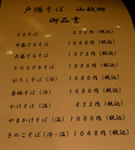 戸隠そば 山故郷
御品書
ざるそば 832円(税込)
中盛ざるそば 1048円(税込)
大盛ざるそば 1372円(税込)
とろろざるそば 1080円(税込)
おろしそば(冷) 1080円(税込)
かけそば(温) 832円(税込)
やまかけそば(温) 1080円(税込)
きのこそば(冷・温) 1048円(税込)